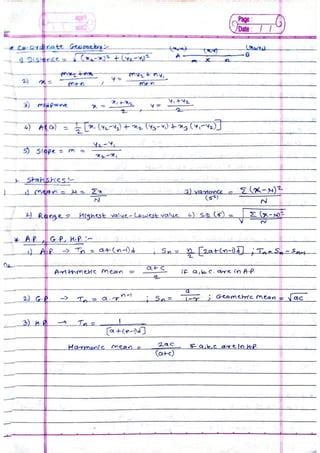 Page :
Date : / /
* Co-ordinate Geometry:-
1) Distance = √(x₂-x₁)² + (y₂-y₁)²
(x₁,y₁) (x,y) (x₂,y₂)
A m x n B
2) x = mx₂+nx₁ / m+n , y = my₂+ny₁ / m+n
3) midpoint x = x₁+x₂ / 2 , y = y₁+y₂ / 2
4) A(Δ) = 1/2 [x₁(y₂-y₃) + x₂(y₃-y₁) + x₃(y₁-y₂)]
5) Slope = m = y₂-y₁ / x₂-x₁
Statistics:-
1) mean = M = Σx / N 3) variance (σ²) = Σ(x-M)² / N
2) Range = Highest value - Lowest value 4) SD (σ) = √Σ(x-M)² / N
* A.P, G.P, H.P :-
1) A.P → Tn = a+(n-1)d , Sn = n/2 [2a+(n-1)d] , Tn = Sn - Sn-1
Arithmetic mean = a+c / 2 if a,b,c are in A.P
2) G.P → Tn = a.rⁿ⁻¹ ; Sn = a / 1-r ; Geometric mean = √ac
3) H.P → Tn = 1 / [a+(n-1)d]
Harmonic mean = 2ac / (a+c) if a,b,c are in H.P